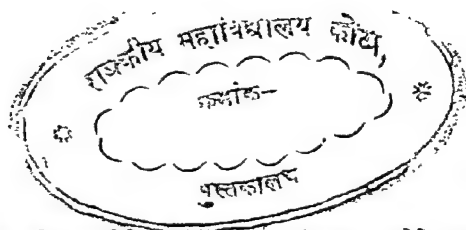 राजकीय महाविद्यालय कोटा,
क्रमांक—
पुस्तकालय